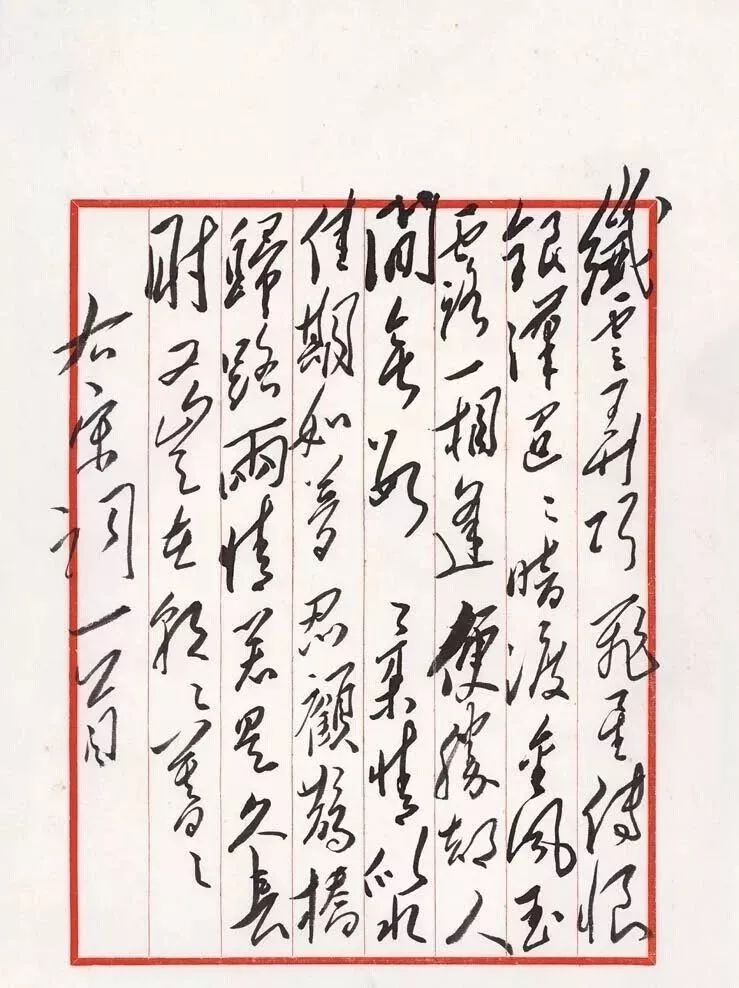 纖雲弄巧飛星傳恨
銀漢迢〻暗渡金風玉
露一相逢便勝却人
間無數 柔情似水
佳期如夢忍顧鵲橋
歸路兩情若是久長
時又豈在朝〻暮〻
右宋詞一首